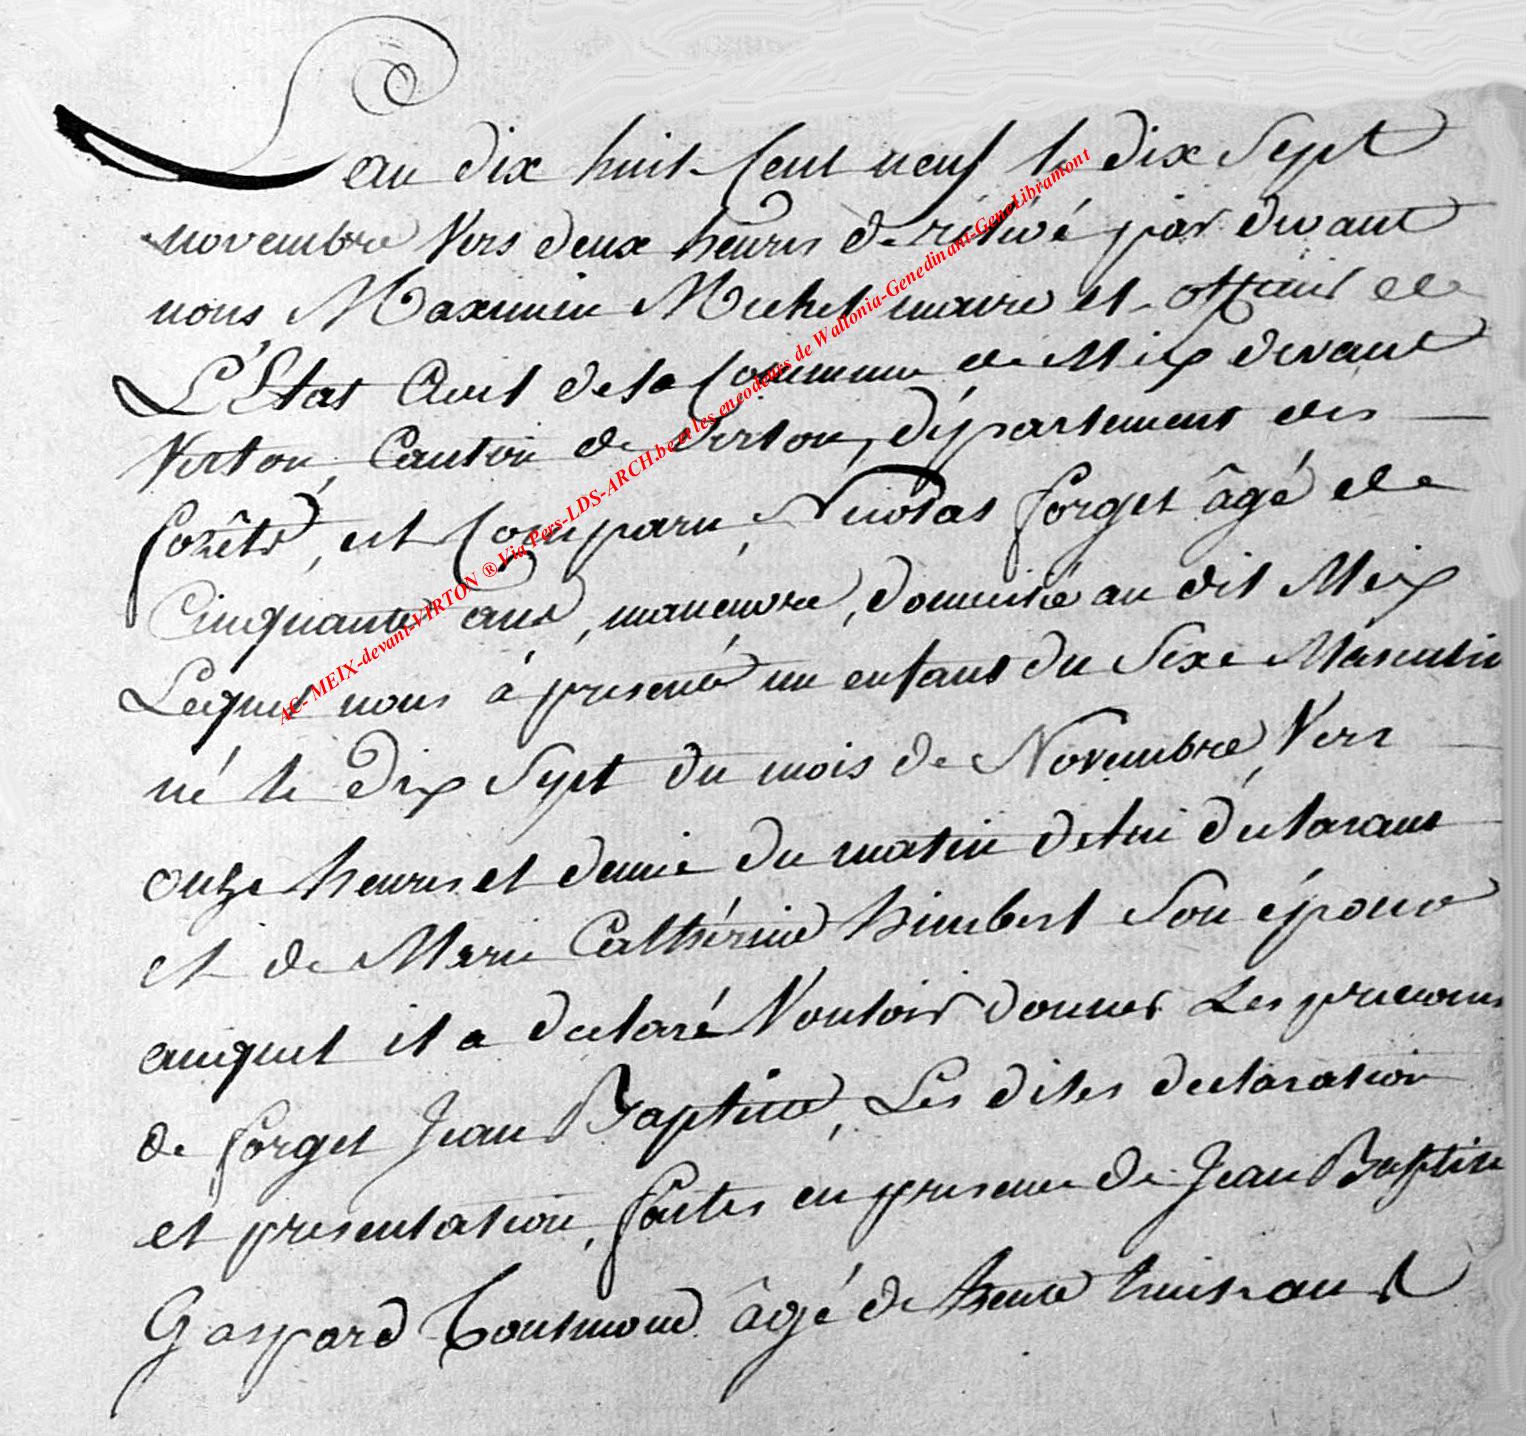 L'an dix huit Cent neuf le dix Sept
novembre Vers deux heures de rélévé par devant
nous Maximin Michel maire et officier de
L'État Civil de la Commune de Meix devant
Virton, Canton de Virton, département des
forêts, est Comparu, Nicolas forget âgé de
Cinquante ans, manœuvre, domicilié au dit Meix
Lequel nous à présenté un enfant du Sexe Masculin
né le Dix Sept du mois de Novembre, Vers
onze heures et demie du matin de lui déclarant
et de Marie Cathérine himbert Son épouse
auquel il a déclaré Vouloir donner Les prenoms
de forget Jean Baptiste, Les dites declaration
et presentation, faites en presence de Jean Baptiste
Gaspard âgé de trente huit ans
AC- MEIX-devant-VIRTON ® Via Pers-LDS-ARCH.be et les encodeurs de Wallonia-Genedinant-GeneLibramont